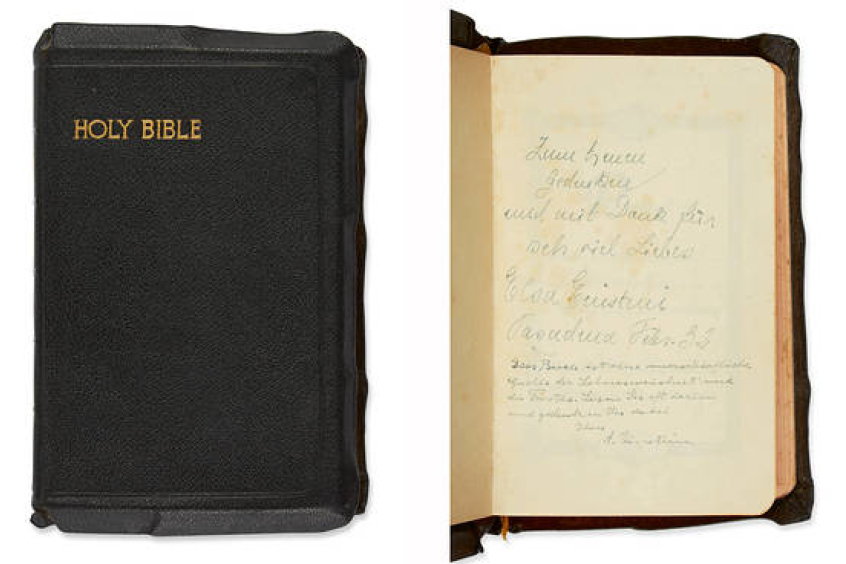 HOLY BIBLE
Zum treuen
Gedenken
und mit Dank für
sehr viel Liebes
Elsa Einstein
Pasadena Febr. 32
Dies Buch ist eine unerschöpfliche
Quelle der Lebensweisheit und
des Trostes. Lesen Sie oft darin
und gedenken Sie dabei
Ihres
A. Einstein.